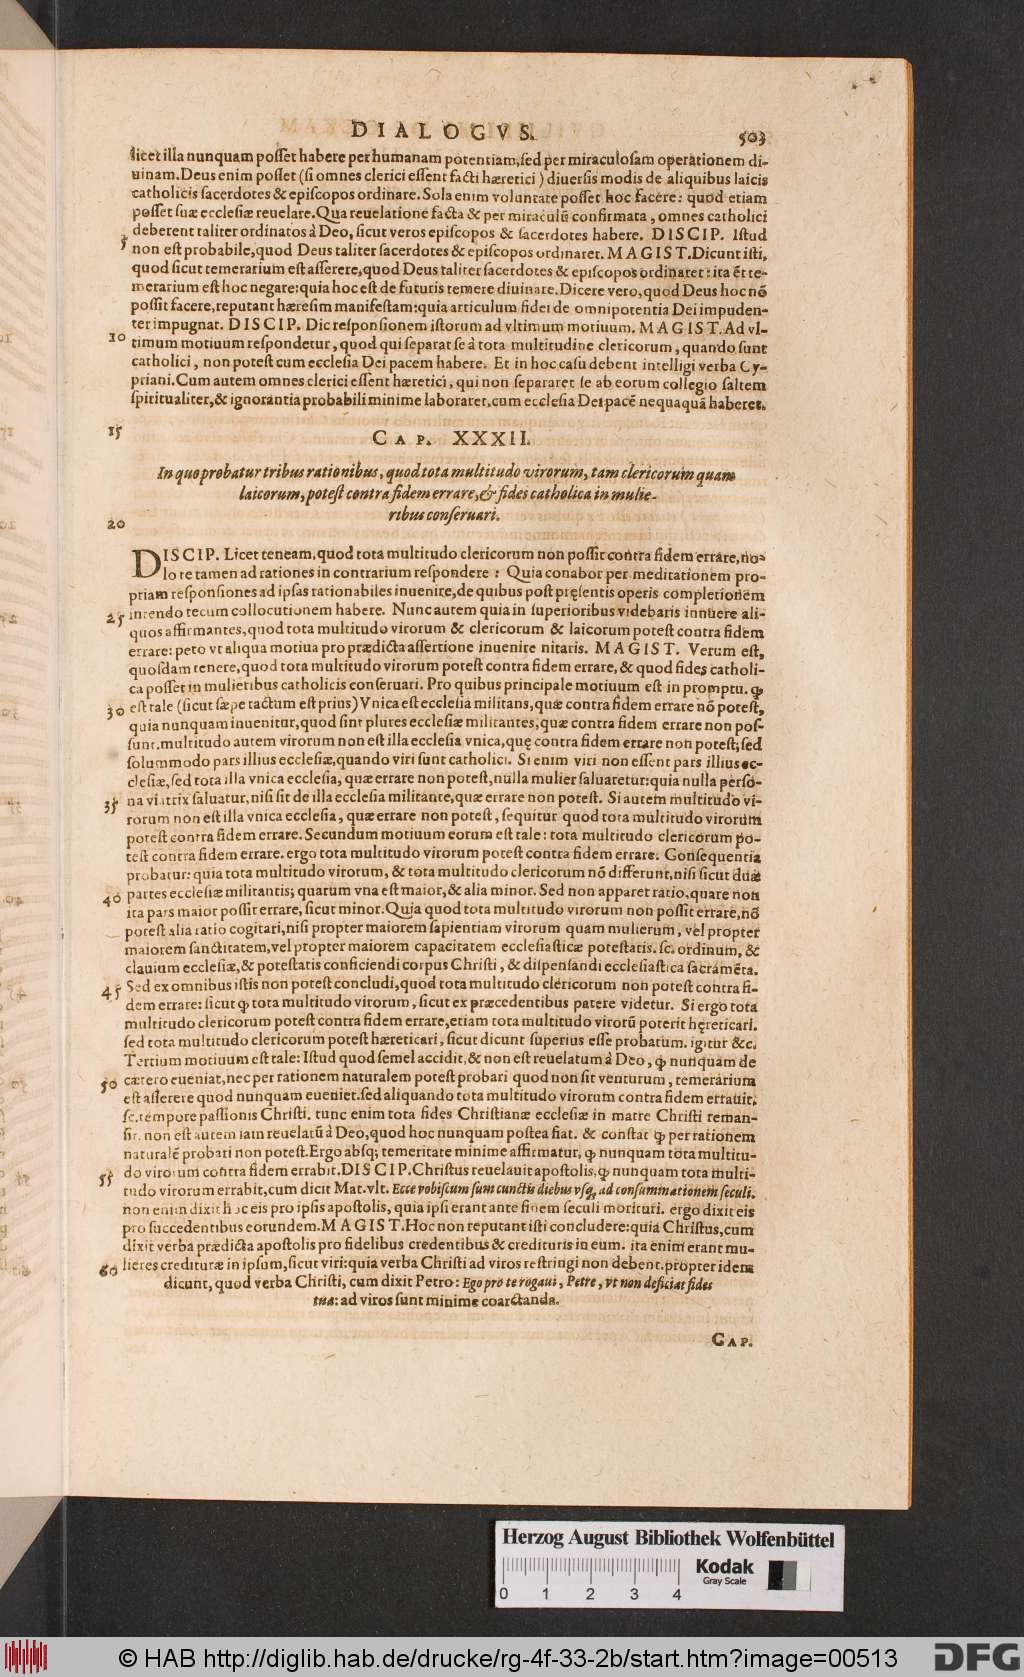 DIALOGVS. 503
licet illa nunquam posset habere per humanam potentiam, sed per miraculosam operationem di-
uinam. Deus enim posset (si omnes clerici essent facti hæretici) diuersis modis de aliquibus laicis
catholicis sacerdotes & episcopos ordinare. Sola enim voluntate posset hoc facere: quod etiam
posset suæ ecclesiæ reuelare. Qua reuelatione facta & per miraculū confirmata, omnes catholici
deberent taliter ordinatos à Deo, sicut veros episcopos & sacerdotes habere. DISCIP. Istud
5 non est probabile, quod Deus taliter sacerdotes & episcopos ordinaret. MAGIST. Dicunt isti,
quod sicut temerarium est asserere, quod Deus taliter sacerdotes & episcopos ordinaret: ita ēt te-
merarium est hoc negare: quia hoc est de futuris temere diuinare. Dicere vero, quod Deus hoc nō
possit facere, reputant hæresim manifestam: quia articulum fidei de omnipotentia Dei impuden-
ter impugnat. DISCIP. Dic responsionem istorum ad vltimum motiuum. MAGIST. Ad vl-
10 timum motiuum respondetur, quod qui separat se à tota multitudine clericorum, quando sunt
catholici, non potest cum ecclesia Dei pacem habere. Et in hoc casu debent intelligi verba Cy-
priani. Cum autem omnes clerici essent hæretici, qui non separaret se ab eorum collegio saltem
spiritualiter, & ignorantia probabili minime laboraret, cum ecclesia Dei pacē nequaquā haberet.
15 CAP. XXXII.
In quo probatur tribus rationibus, quod tota multitudo virorum, tam clericorum quam
laicorum, potest contra fidem errare, & fides catholica in mulie-
20 ribus conseruari.
DISCIP. Licet teneam, quod tota multitudo clericorum non possit contra fidem errare, no-
lo te tamen ad rationes in contrarium respondere: Quia conabor per meditationem pro-
priam responsiones ad ipsas rationabiles inuenire, de quibus post pręsentis operis completionem
25 intendo tecum collocutionem habere. Nunc autem quia in superioribus videbaris innuere ali-
quos affirmantes, quod tota multitudo virorum & clericorum & laicorum potest contra fidem
errare: peto vt aliqua motiua pro prædicta assertione inuenire nitaris. MAGIST. Verum est,
quosdam tenere, quod tota multitudo virorum potest contra fidem errare, & quod fides catholi-
ca posset in mulieribus catholicis conseruari. Pro quibus principale motiuum est in promptu. ꝙ
30 est tale (sicut sæpe tactum est prius) Vnica est ecclesia militans, quæ contra fidem errare nō potest,
quia nunquam inuenitur, quod sint plures ecclesiæ militantes, quæ contra fidem errare non pos-
sunt. multitudo autem virorum non est illa ecclesia vnica, quę contra fidem errare non potest; sed
solummodo pars illius ecclesiæ, quando viri sunt catholici. Si enim viri non essent pars illius ec-
clesiæ, sed tota illa vnica ecclesia, quæ errare non potest, nulla mulier saluaretur: quia nulla perso-
35 na viatrix saluatur, nisi sit de illa ecclesia militante, quæ errare non potest. Si autem multitudo vi-
rorum non est illa vnica ecclesia, quæ errare non potest, sequitur quod tota multitudo virorum
potest contra fidem errare. Secundum motiuum eorum est tale: tota multitudo clericorum po-
test contra fidem errare. ergo tota multitudo virorum potest contra fidem errare. Consequentia
probatur: quia tota multitudo virorum, & tota multitudo clericorum nō differunt, nisi sicut duæ
40 partes ecclesiæ militantis; quarum vna est maior, & alia minor. Sed non apparet ratio, quare non
ita pars maior possit errare, sicut minor. Quia quod tota multitudo virorum non possit errare, nō
potest alia ratio cogitari, nisi propter maiorem sapientiam virorum quam mulierum, vel propter
maiorem sanctitatem, vel propter maiorem capacitatem ecclesiasticæ potestatis. sc. ordinum, &
clauium ecclesiæ, & potestatis conficiendi corpus Christi, & dispensandi ecclesiastica sacramēta.
45 Sed ex omnibus istis non potest concludi, quod tota multitudo clericorum non potest contra fi-
dem errare: sicut ꝙ tota multitudo virorum, sicut ex præcedentibus patere videtur. Si ergo tota
multitudo clericorum potest contra fidem errare, etiam tota multitudo virorū poterit hęreticari.
sed tota multitudo clericorum potest hæreticari, sicut dicunt superius esse probatum. igitur &c.
Tertium motiuum est tale: Istud quod semel accidit, & non est reuelatum à Deo, ꝙ nunquam de
50 cætero eueniat, nec per rationem naturalem potest probari quod non sit venturum, temerarium
est asserere quod nunquam eueniet. sed aliquando tota multitudo virorum contra fidem errauit,
sc. tempore passionis Christi. tunc enim tota fides Christianæ ecclesiæ in matre Christi reman-
sit. non est autem iam reuelatū à Deo, quod hoc nunquam postea fiat. & constat ꝙ per rationem
naturalē probari non potest. Ergo absq; temeritate minime affirmatur, ꝙ nunquam tota multitu-
55 do virorum contra fidem errabit. DISCIP. Christus reuelauit apostolis, ꝙ nunquam tota multi-
tudo virorum errabit, cum dicit Mat. vlt. Ecce vobiscum sum cunctis diebus vsq; ad consummationem seculi.
non enim dixit hoc eis pro ipsis apostolis, quia ipsi erant ante finem seculi morituri. ergo dixit eis
pro succedentibus eorundem. MAGIST. Hoc non reputant isti concludere: quia Christus, cum
dixit verba prædicta apostolis pro fidelibus credentibus & credituris in eum. ita enim erant mu-
60 lieres crediturę in ipsum, sicut viri: quia verba Christi ad viros restringi non debent. propter idem
dicunt, quod verba Christi, cum dixit Petro: Ego pro te rogaui, Petre, vt non deficiat fides
tua: ad viros sunt minime coarctanda.
CAP.
Herzog August Bibliothek Wolfenbüttel
Kodak
Gray Scale
0 1 2 3 4
© HAB http://diglib.hab.de/drucke/rg-4f-33-2b/start.htm?image=00513
DFG